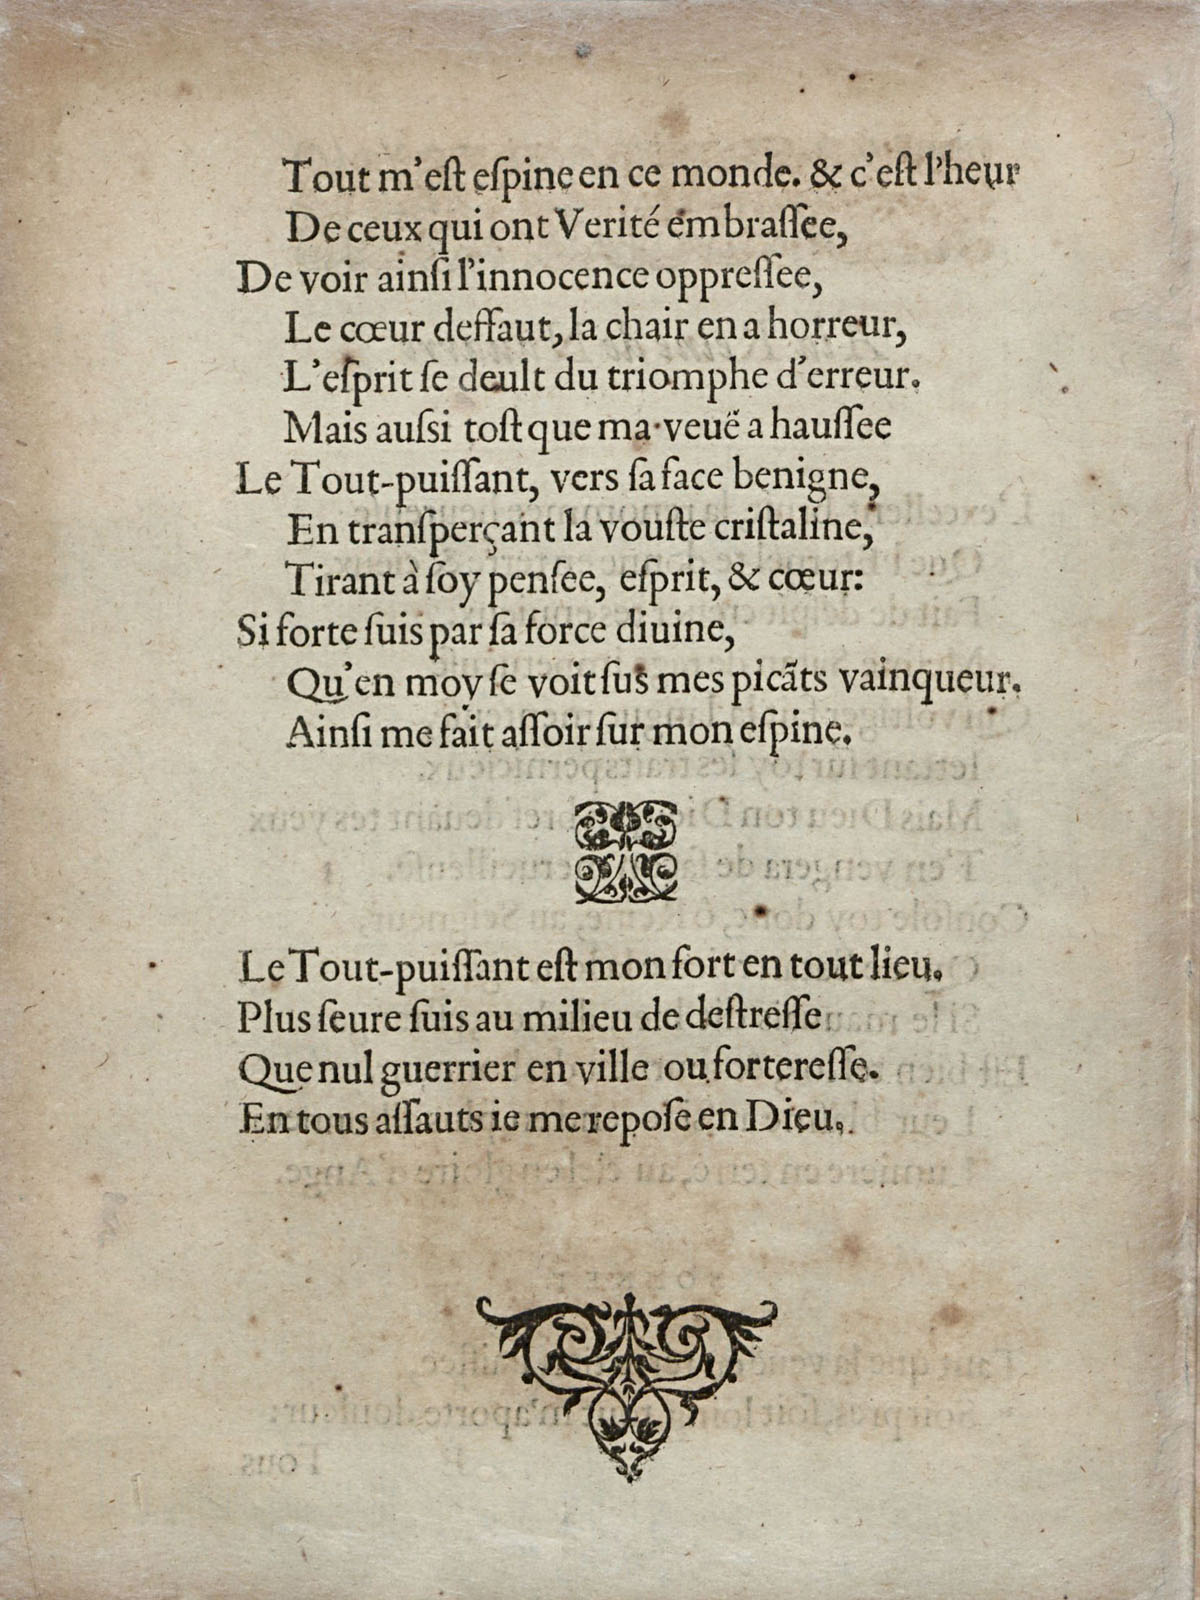 Tout m’eſt eſpine en ce monde. & c’eſt l’heur
De ceux qui ont Verité embraſſee,
De voir ainſi l’innocence oppreſſee,
Le cœur deffaut, la chair en a horreur,
L’eſprit ſe deult du triomphe d’erreur.
Mais auſsi toſt que ma veuë a hauſſee
Le Tout-puiſſant, vers ſa face benigne,
En tranſperçant la vouſte criſtaline,
Tirant à ſoy penſee, eſprit, & cœur:
Si forte ſuis par ſa force diuine,
Qu’en moy ſe voit ſus mes picãts vainqueur.
Ainſi me fait aſſoir ſur mon eſpine.
Le Tout-puiſſant eſt mon fort en tout lieu.
Plus ſeure ſuis au milieu de deſtreſſe
Que nul guerrier en ville ou fortereſſe.
En tous aſſauts ie me repoſe en Dieu.